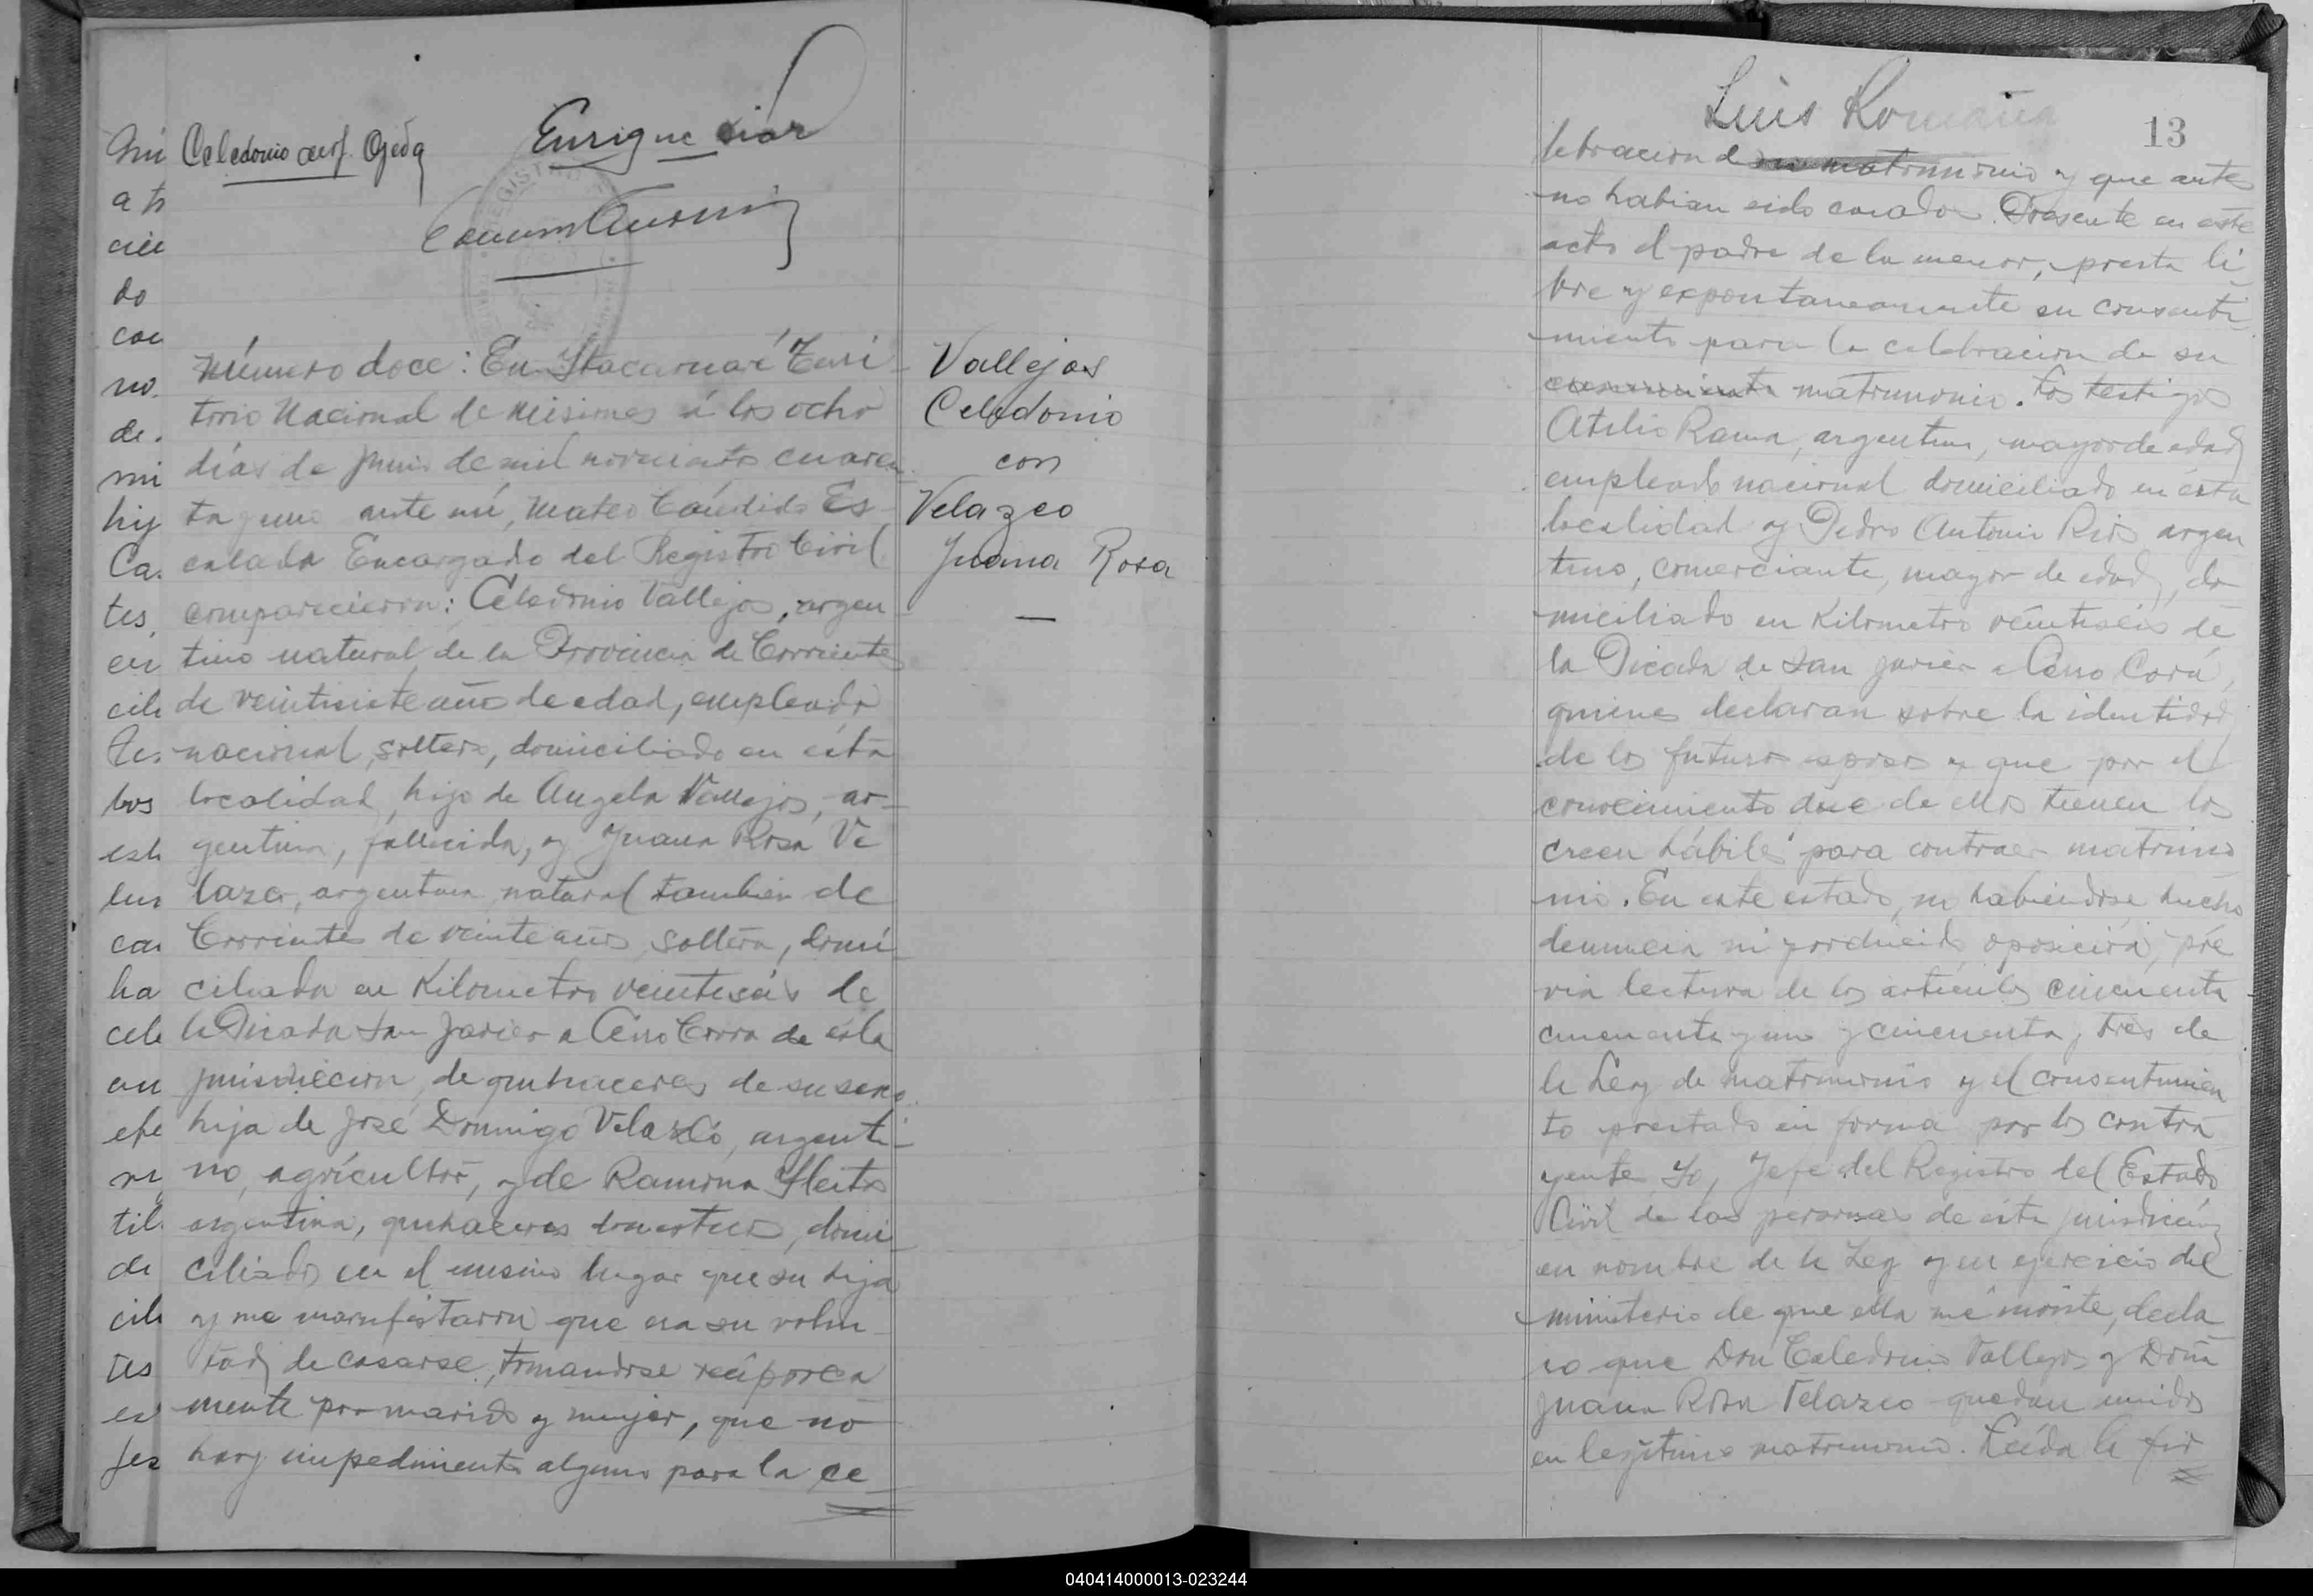 Enrique
Celedonio Ojeda
Número doce: En Itacaruaré Terri-
torio Nacional de Misiones á los ocho
días de junio de mil novecientos cuaren-
ta y uno ante mí, Mateo Cándido Es-
calada Encargado del Registro Civil
comparecieron: Celedonio Vallejos, argen
tino natural de la Provincia de Corrientes
de veintisiete años de edad, empleado
nacional, soltero, domiciliado en esta
localidad, hijo de Angela Vallejos, ar-
gentina, fallecida, y Juana Rosa Ve
lazco, argentina natural tambien de
Corrientes de veinte años, soltera, domi-
ciliada en Kilometro veintiseis de
la Picada San Javier a Cerro Cora de esta
jurisdiccion, de quehaceres de su sexo
hija de José Domingo Velazco, argenti-
no, agricultor, y de Ramona
argentina, quehaceres domesticos, domi-
ciliados en el mismo lugar que su hija
y me manifestaron que era su volun-
tad de casarse, tomandose reciproca
mente por marido y mujer, que no
hay impedimento alguno para la ce-
Vallejos
Celedonio
con
Velazco
Juana Rosa
Luis Romaña
13
lebracion de su matrimonio y que antes
no habian sido casados. Presente en este
acto el padre de la menor, presta li-
bre y expontaneamente su consenti-
miento para la celebracion de su
matrimonio. Los testigos
Atilio Rama, argentino, mayor de edad
empleado nacional domiciliado en esta
localidad y Pedro Antonio Rios argen
tino, comerciante, mayor de edad, do-
miciliado en Kilometro veintiseis de
la Picada de San Javier a Cerro Corá,
quienes declaran sobre la identidad
de los futuros esposos y que por el
conocimiento que de ellos tienen los
creen hábiles para contraer matrimo
nio. En este estado, no habiendose hecho
denuncia ni producido oposición, pre
via lectura de los articulos cincuenta
cincuenta y uno y cincuenta y tres de
la Ley de matrimonio y el consentimien
to prestado en forma por los contra
yentes Yo, Jefe del Registro del Estado
Civil de las personas de esta jurisdicción
en nombre de la Ley y en ejercicio del
ministerio de que ella me inviste, decla
ro que Don Celedonio Vallejos y Doña
Juana Rosa Velazco quedan unidos
en legítimo matrimonio. Leída la fir
040414000013-023244